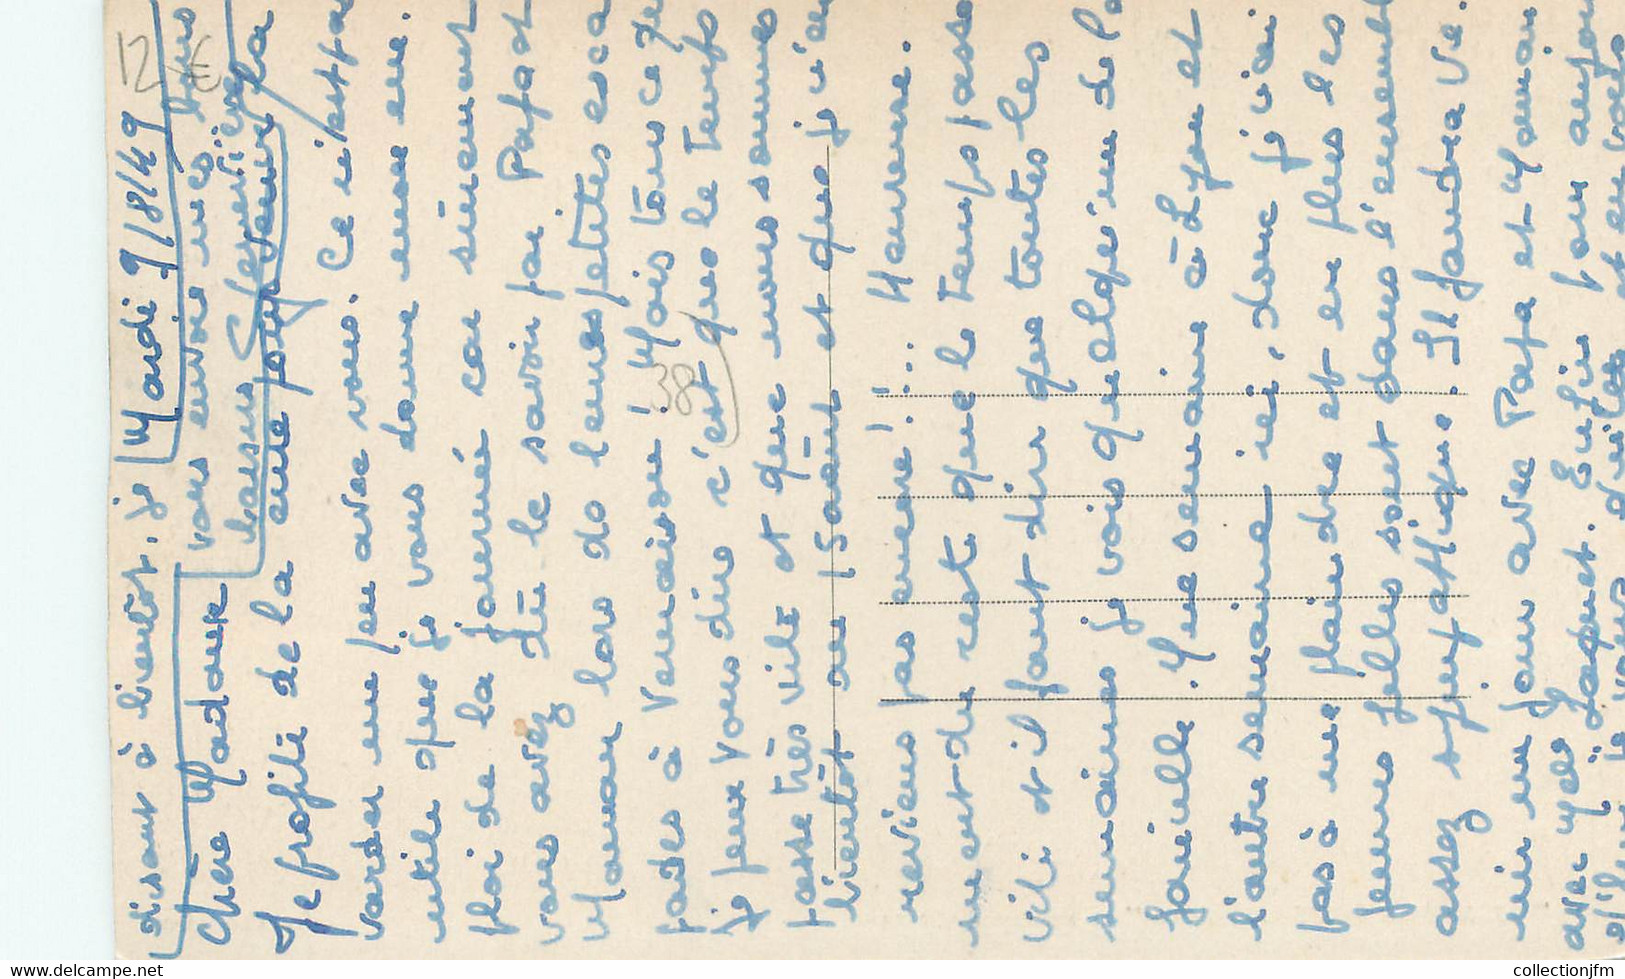 Mardi 9/8/49
Chère Madame
Je profite de la cure pour venir
varder un peu avec vous. Ce n'est pas
utile que je vous donne mon em.
ploi de la journée car sûrement
vous avez dû le savoir par Papa et
Maman lors de leurs petites esca
pades à Venaison! Mais tout ce que
je peux vous dire c'est que le temps
passe très vite et que nous sommes
bientôt au 15 août et que je n'en
reviens pas encore!!.. Heureuse.
ment du reste que le temps passe
vite et il faut dire que toutes les
semaines je vois quelqu'un de la
famille. Une semaine à Lyon et
l'autre semaine ici, donc je n'ai
pas à me plaindre et en plus les
jeunes filles sont dans l'ensemble
assez sympathique. Il faudra ve.
nir un jour avec Papa et Maman
avec Jaquet. Enfin
disant à bientôt, je
vous envoie mes
baisers
12 €
38
www.delcampe.net
collectionjfm